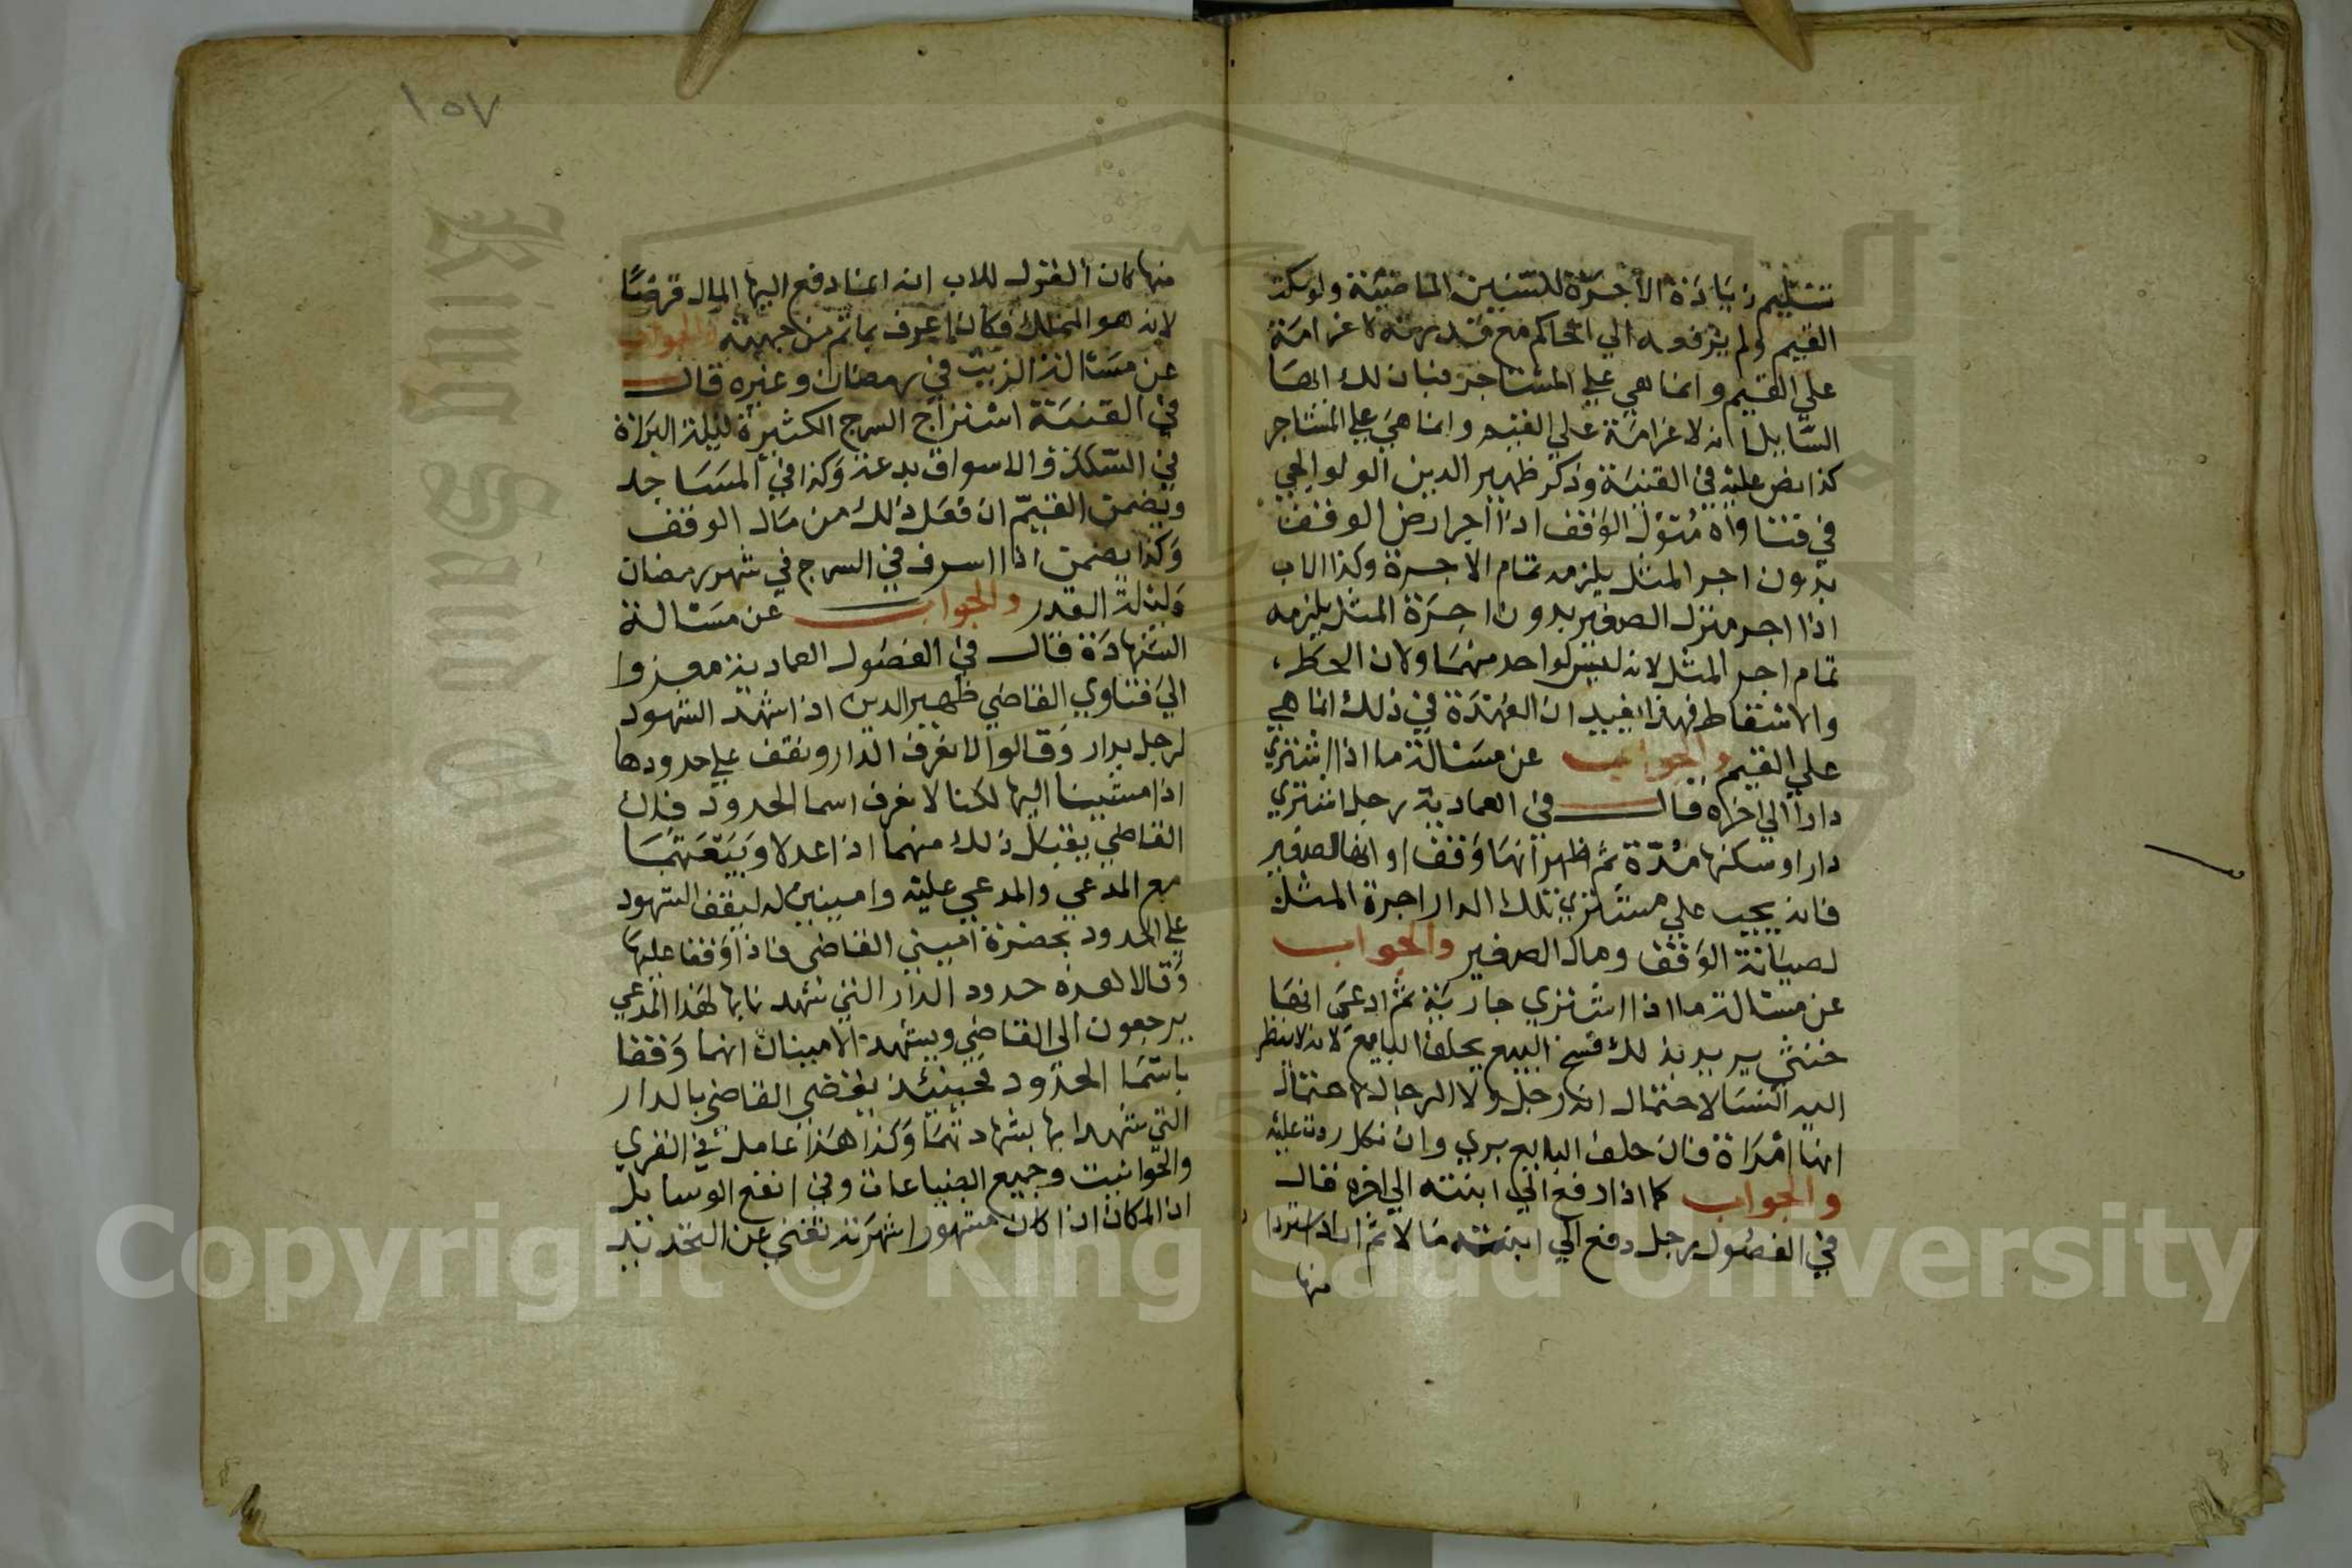 تسليم زيادة الأجرة للسنين الماضية ولو سكت
القيم ولم يرفعه الي الحاكم مع قدرته لا غرامة
علي القيم وانما هي علي المستاجر فبان لك ايها
السايل انه لا غرامة علي القيم وانما هي علي المستاجر
كذا نص عليه في القنية وذكر ظهير الدين الولوالجي
في فتاواه متولي الوقف اذا اجر ارض الوقف
بدون اجر المثل يلزمه تمام الاجرة وكذا الاب
اذا اجر منزل الصغير بدون اجرة المثل يلزمه
تمام اجر المثل لانه ليس لواحد منهما ولان الحط
والاسقاط فهذا يفيد ان العهدة في ذلك انما هي
علي القيم والجواب عن مسالة ما اذا اشتري
دارا الي اخره قال في العمادية رجل اشتري
دارا وسكنها مدة ثم ظهر انها وقف او انها لصغير
فانه يجب علي مشتري تلك الدار اجرة المثل
لصيانة الوقف ومال الصغير والجواب
عن مسالة ما اذا اشتري جارية ثم ادعي انها
خنثي يريد بذلك فسخ البيع يحلف البايع لانه لا ينظر
اليه النسا لاحتمال انه رجل ولا الرجال لاحتمال
انها امراة فان حلف البايع بري وان نكل ردت عليه
والجواب كما اذا دفع الي ابنته الي اخره قال
في الفصول رجل دفع الي ابنته مالا ثم اراد استردا
منها
١٥٧
منها كان القول للاب انه انما دفع اليها المال قرضا
لانه هو المملك فكان اعرف بما تم من جهته والجواب
عن مسالة الزيت في رمضان وغيره قال
في القنية استراج السرج الكثيرة ليلة البراة
في السكك والاسواق بدعة وكذا في المساجد
ويضمن القيم ان فعل ذلك من مال الوقف
وكذا يضمن اذا اسرف في السرج في شهر رمضان
وليلة القدر والجواب عن مسالة
الشهادة قال في الفصول العمادية معزوا
الي فتاوي القاضي ظهير الدين اذا شهد الشهود
لرجل بدار وقالوا لا نعرف الدار ونقف علي حدودها
اذا مشينا اليها لكنا لا نعرف اسما الحدود فان
القاضي يقبل ذلك منهما اذا عدلا ويبعثهما
مع المدعي والمدعي عليه وامينين له ليقف الشهود
علي الحدود بحضرة اميني القاضي فاذا وقفا عليها
وقالا هذه حدود الدار التي شهدنا بها لهذا المدعي
يرجعون الي القاضي ويشهد الامينان انهما وقفا
باسما الحدود فحينئذ يقضي القاضي بالدار
التي شهدا بها بشهادتهما وكذا هذا عامل في القري
والحوانيت وجميع الضياعات وفي انفع الوسايل
ان المكان اذا كان مشهورا شهرته تغني عن التحديد
Copyright © King Saud University